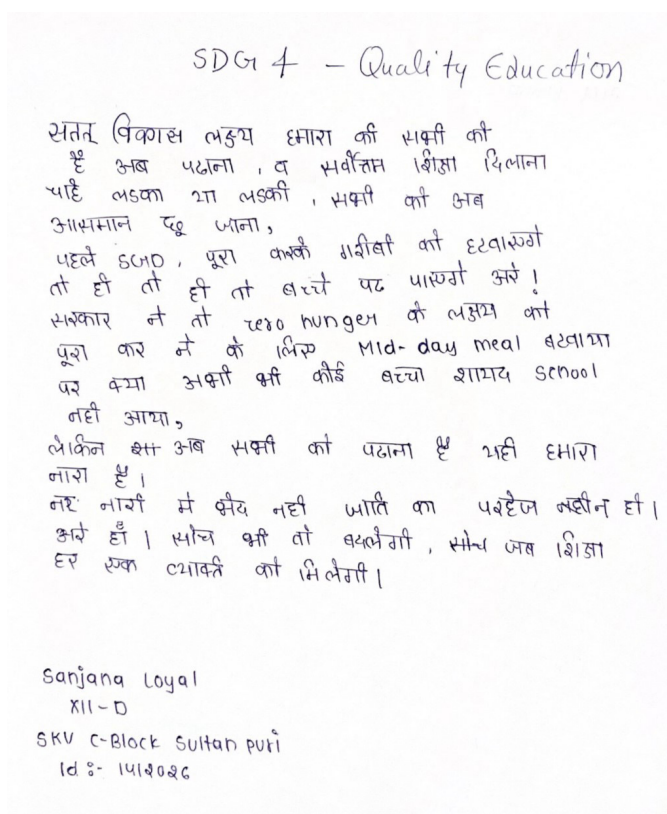 SDG 4 - Quality Education
सतत् विकास लक्ष्य हमारा की सभी को
है अब पढाना , व सर्वोत्तम शिक्षा दिलाना
चाहे लडका या लडकी , सभी को अब
आसमान छू जाना ,
पहले SGD , पूरा करके गरीबी को हटवाएगे
तो ही तो ही तो बच्चे पढ पाएगे अरे !
सरकार ने तो zero hunger के लक्ष्य को
पूरा कर ने के लिए Mid-day meal बटवाया
पर क्या अभी भी कोई बच्चा शायद School
नही आया ,
लेकिन अब सभी को पढाना है यही हमारा
नारा है ।
नर नारी मे भेद नही जाति का परहेज न हो ।
अरे हाँ । सोच भी तो बदलेगी , सोच जब शिक्षा
हर एक व्यक्ति को मिलेगी ।
Sanjana Loyal
XII-D
SKV C-Block Sultan puri
Id :- 1412026